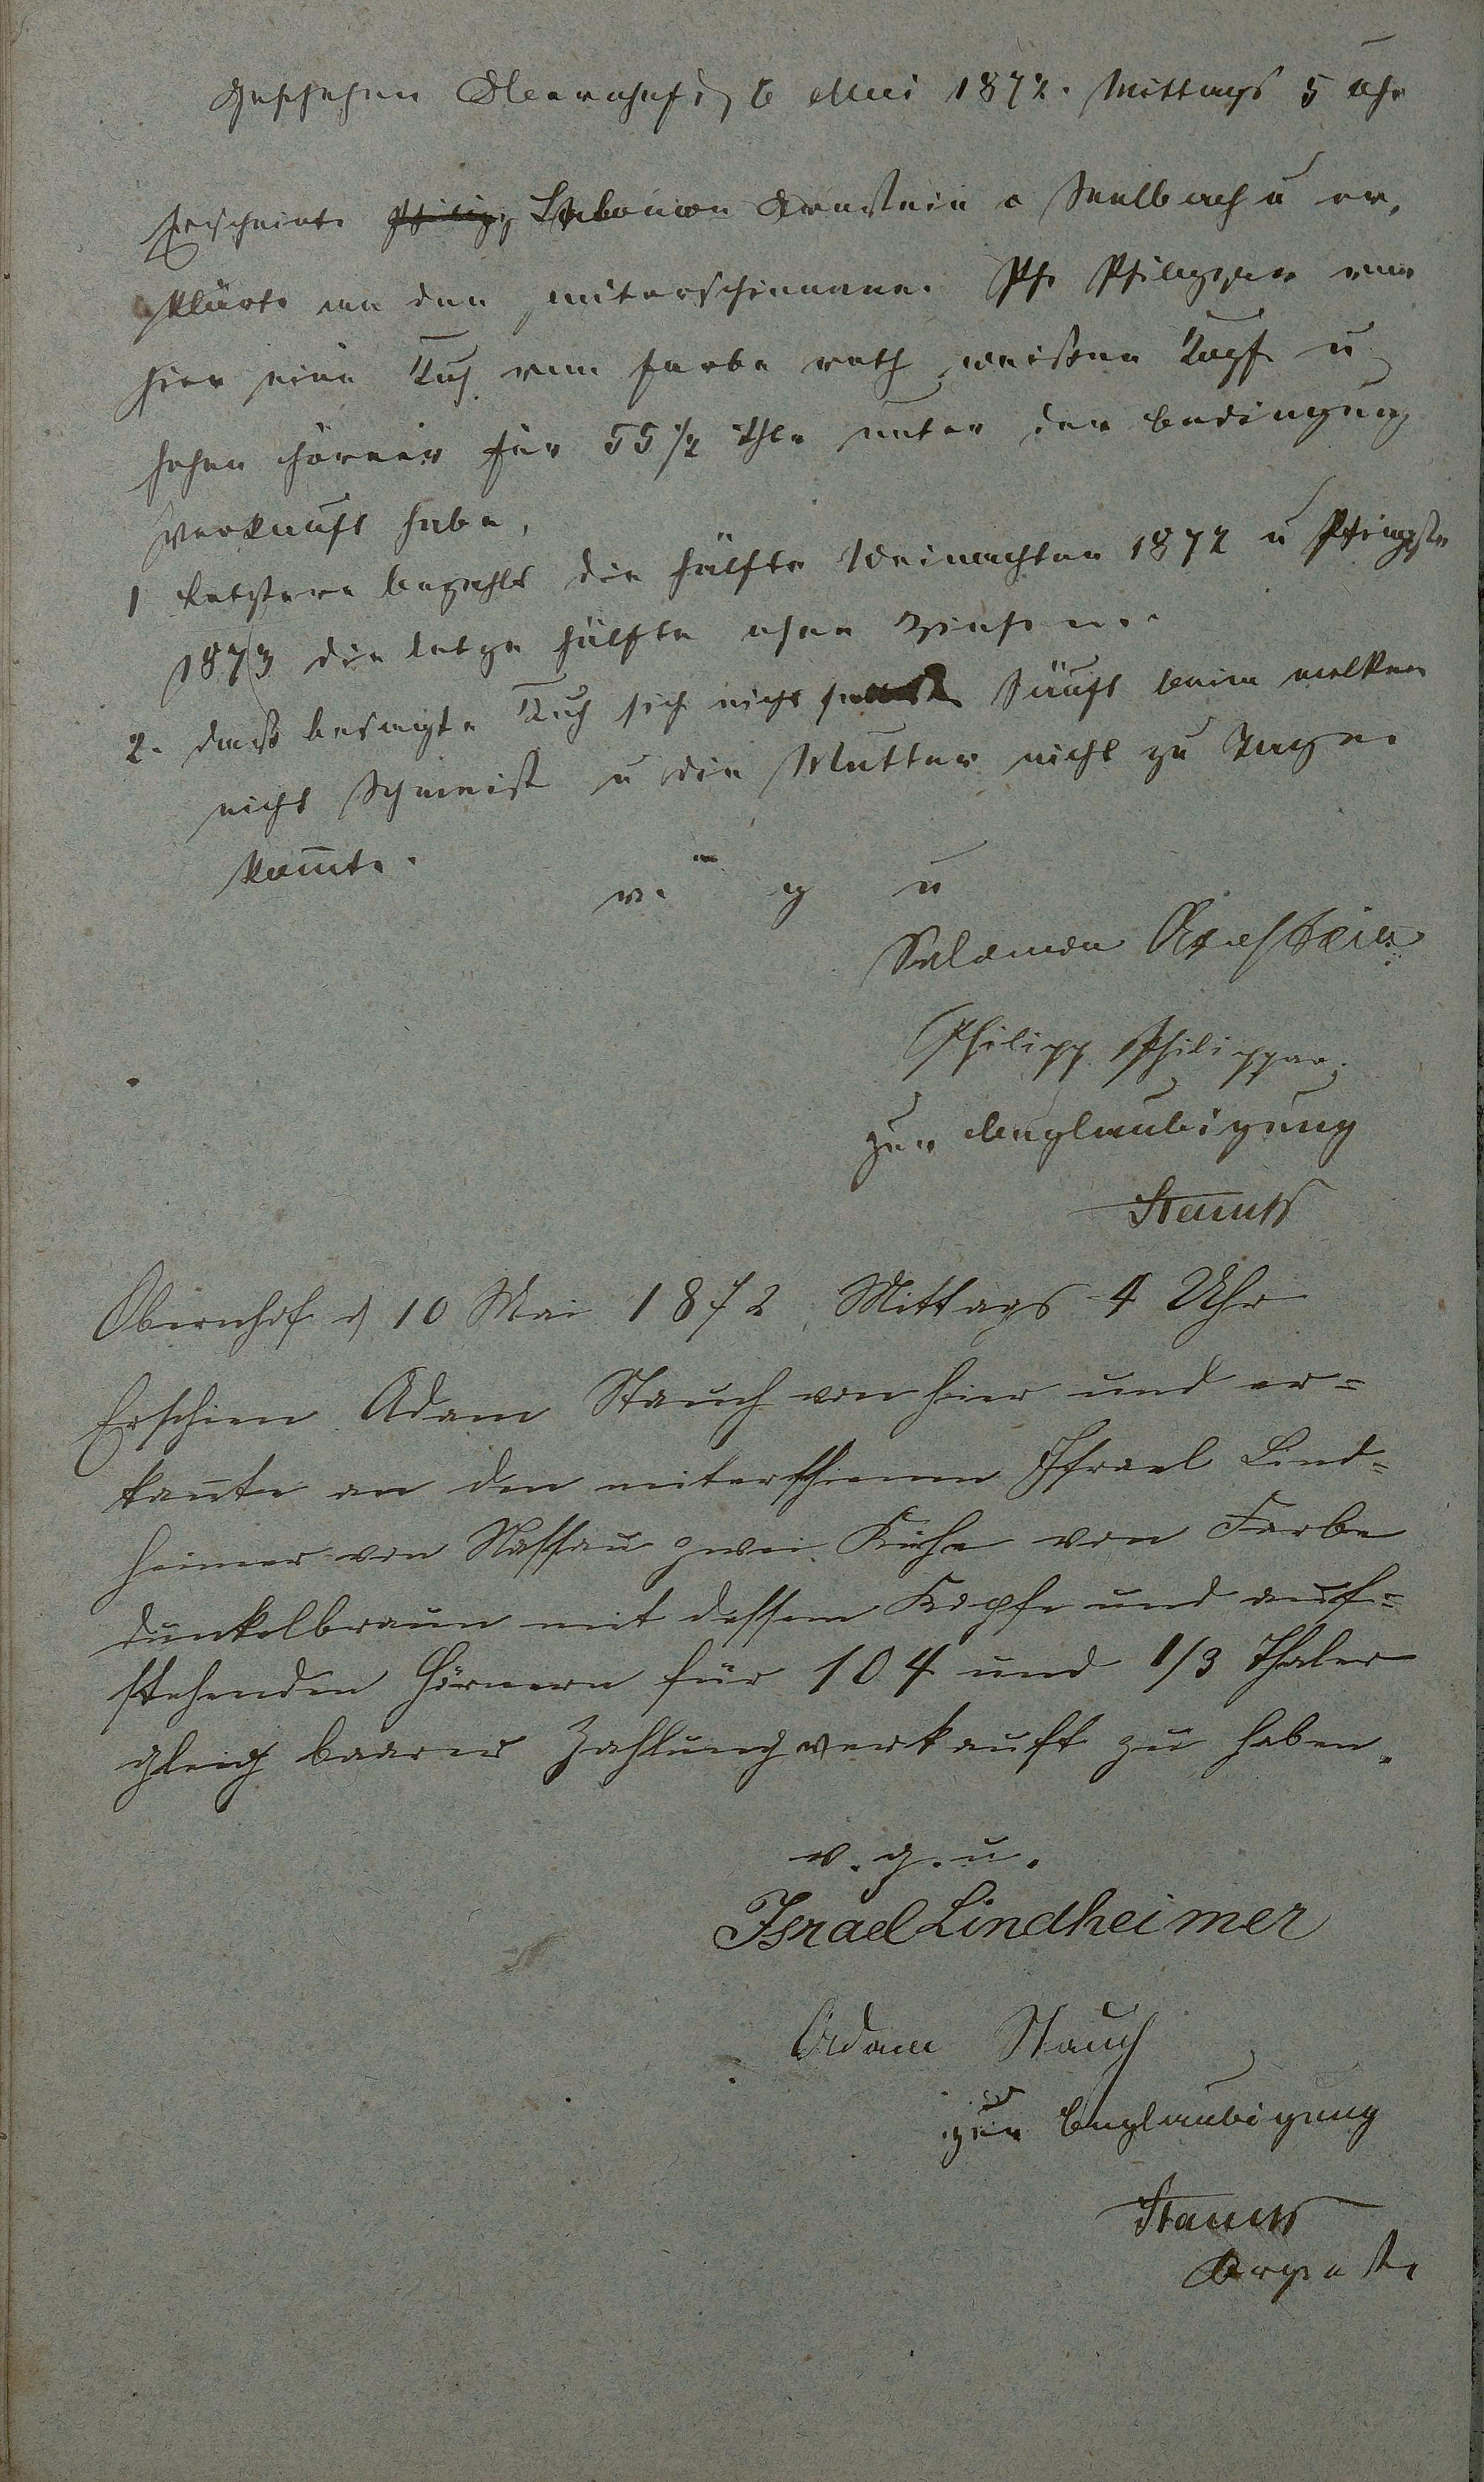 Geschehen Obernhof d 6 Mai 1872. Mittags 5 Uhr
Erscheint Philipp Salomon Arnstein a Seelbach u er,
klärte an den miterschienene. Ph Philippar von
hier eine Kuh von Farbe roth weißen Kopf u
hohen Hörner für 55 1/2 Thlr unter der Bedingung
verkauft habe,
1 Letztere bezahlt die Hälfte Weinachten 1872 u Pfingste
1873 die letze Hälfte ohne Zinsen.
2. daß besagte Kuh sich nicht säuft beim melken
nicht Schmeist u die Mutter nicht zu Tage
kom̄t.
v. g u
Salomon Arnstein
Philipp Philippar.
zur Beglaubigung
Obernhof d 10 Mai 1872 Mittags 4 Uhr
Erschien Adam Stauch von hier und er=
kan̄te an den miterschienen Israel Lind=
heimer von Nassau zwei Kühe von Farbe
dunkelbraun mit dessem Kopfe und auf=
stehenden Hörnern für 104 und 1/3 Thaler
gleich baarer Zahlung verkauft zu haben.
v. g. u.
Israel Lindheimer
Adam Stauch
zur Beglaubigung